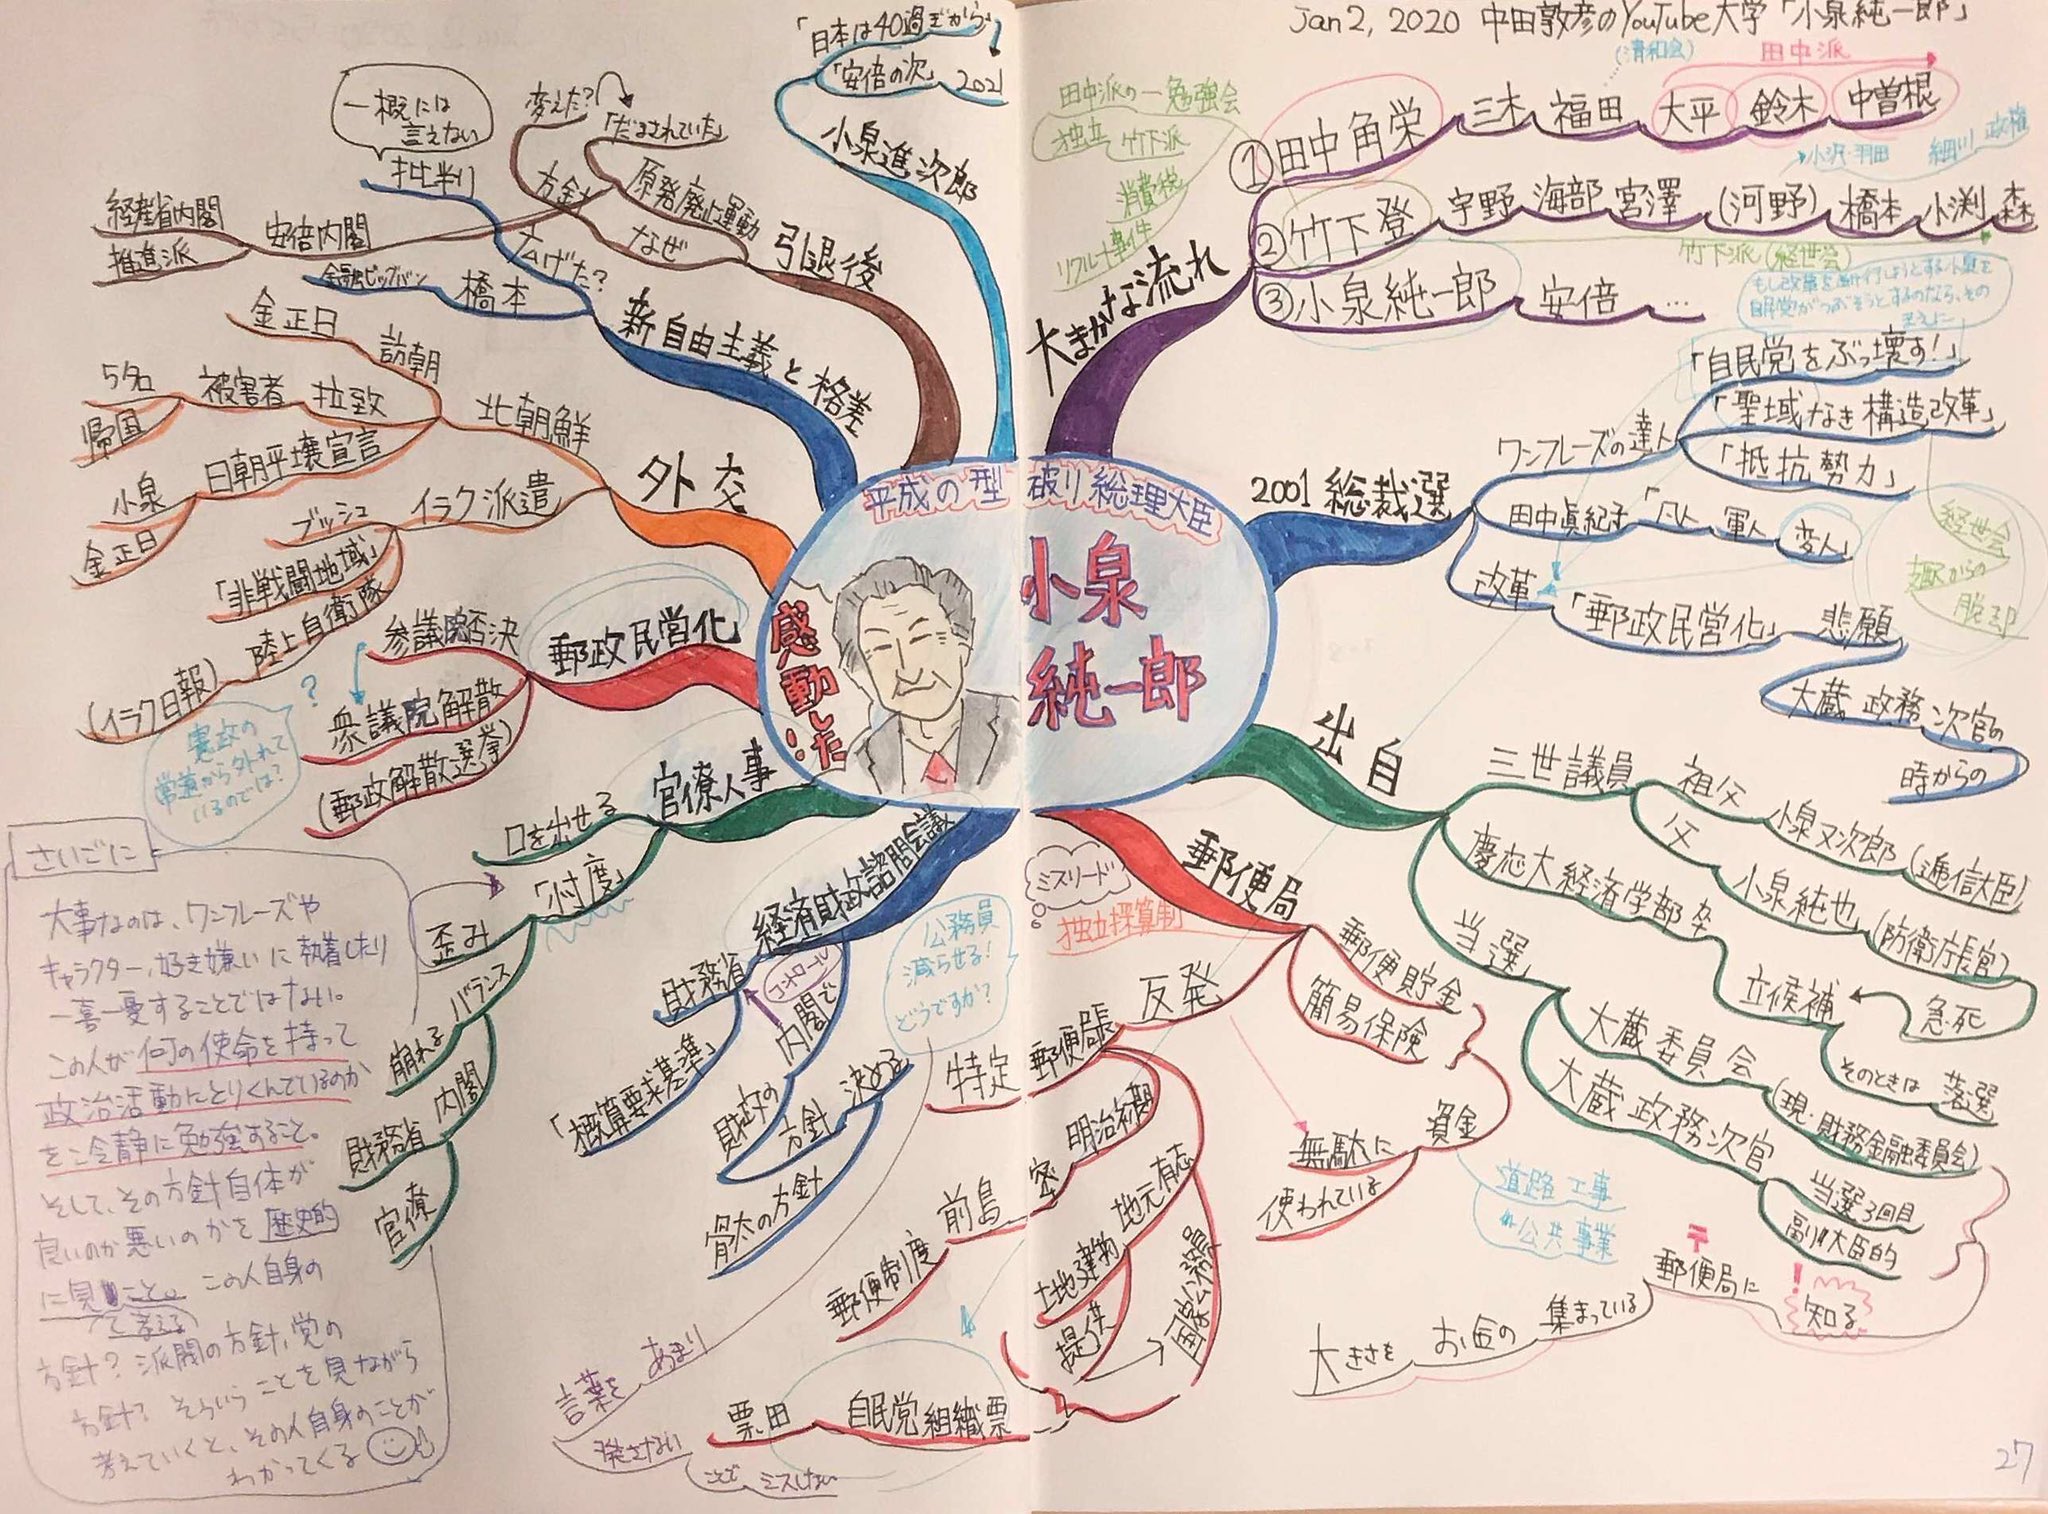 Jan 2, 2020 中田敦彦のYouTube大学「小泉純一郎」
平成の型破り総理大臣
小泉
純一郎
感動した!!
大まかな流れ
①田中角栄
三木
福田
大平
鈴木
中曽根
(清和会)
田中派
②竹下登
宇野
海部
宮澤
(河野)
橋本
小渕
森
小沢・羽田
細川政権
竹下派(経世会)
③小泉純一郎
安倍
…
田中派の一勉強会
独立
竹下派
消費税
リクルート事件
もし改革を断行しようとする小泉を
自民党がつぶそうとするのなら、その
まえに
2001総裁選
ワンフレーズの達人
「自民党をぶっ壊す!」
「聖域なき構造改革」
「抵抗勢力」
田中眞紀子
「凡人
軍人
変人」
改革
「郵政民営化」
悲願
大蔵政務次官の
時からの
経世会
からの
脱却
出自
三世議員
祖父
小泉又次郎
(逓信大臣)
父
小泉純也
(防衛庁長官)
急死
慶応大経済学部卒
立候補
そのときは
落選
当選
大蔵委員会
(現・財務金融委員会)
大蔵政務次官
当選3回目
副大臣的
知る
!
〒
郵便局に
集まっている
お金の
大きさを
郵便局
ミスリード
独立採算制
郵便貯金
簡易保険
資金
無駄に
使われている
道路工事
公共事業
反発
特定
郵便局長
明治初期
前島
密
郵便制度
地元有志
土地建物
提供
国家公務員
自民党組織票
票田
経済財政諮問会議
財務省
「概算要求基準」
コントロール
内閣で
財政の
方針
決める
骨太の方針
公務員
減らせる!
どうですか?
言葉を
あまり
発さない
ことで
ミスしない
官僚人事
口を出せる
「忖度」
歪み
バランス
崩れる
内閣
財務省
官僚
郵政民営化
参議院否決
衆議院解散
(郵政解散選挙)
?
憲政の
常道から外れて
いるのでは?
外交
北朝鮮
訪朝
金正日
拉致
被害者
5名
帰国
日朝平壌宣言
小泉
金正日
イラク派遣
ブッシュ
「非戦闘地域」
陸上自衛隊
(イラク日報)
新自由主義と格差
広げた?
批判
一概には
言えない
橋本
金融ビッグバン
引退後
原発廃止運動
「だまされていた」
なぜ
方針
変えた?
安倍内閣
経産省内閣
推進派
小泉進次郎
「日本は40過ぎから」
「安倍の次」
2021
さいごに
大事なのは、ワンフレーズや
キャラクター、好き嫌いに執着したり
一喜一憂することではない。
この人が何の使命を持って
政治活動にとりくんでいるのか
を冷静に勉強すること。
そして、その方針自体が
良いのか悪いのかを歴史的
に見こと。この人自身の
て考える
方針?派閥の方針、党の
方針?そういうことを見ながら
考えていくと、その人自身のことが
わかってくる
27